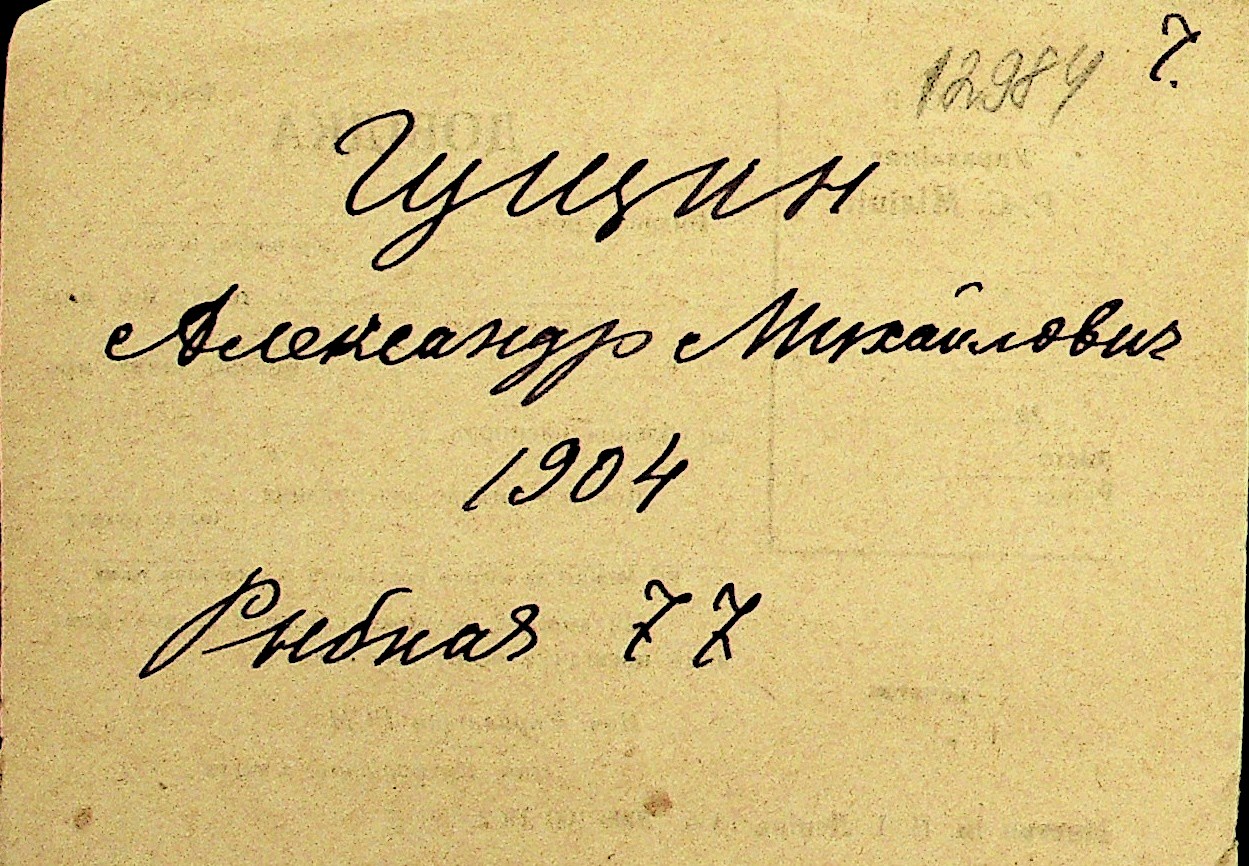 12984 7.
Гущин
Александр Михайлович
1904
Рыбная 77